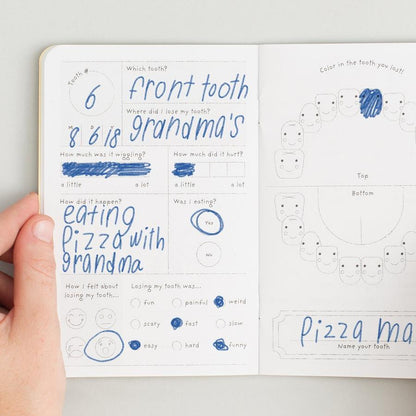 Tooth #
6
Which tooth?
front tooth
Where did I lose my tooth?
grandma's
M D Y
8 6 18
How much was it wiggling?
a little a lot
How much did it hurt?
a little a lot
How did it happen?
eating
pizza with
grandma
Was I eating?
Yes
No
How I felt about
losing my tooth...
Losing my tooth was...
fun painful weird
scary fast slow
easy hard funny
Color in the tooth you lost!
Top
Bottom
Pizza ma
Name your tooth